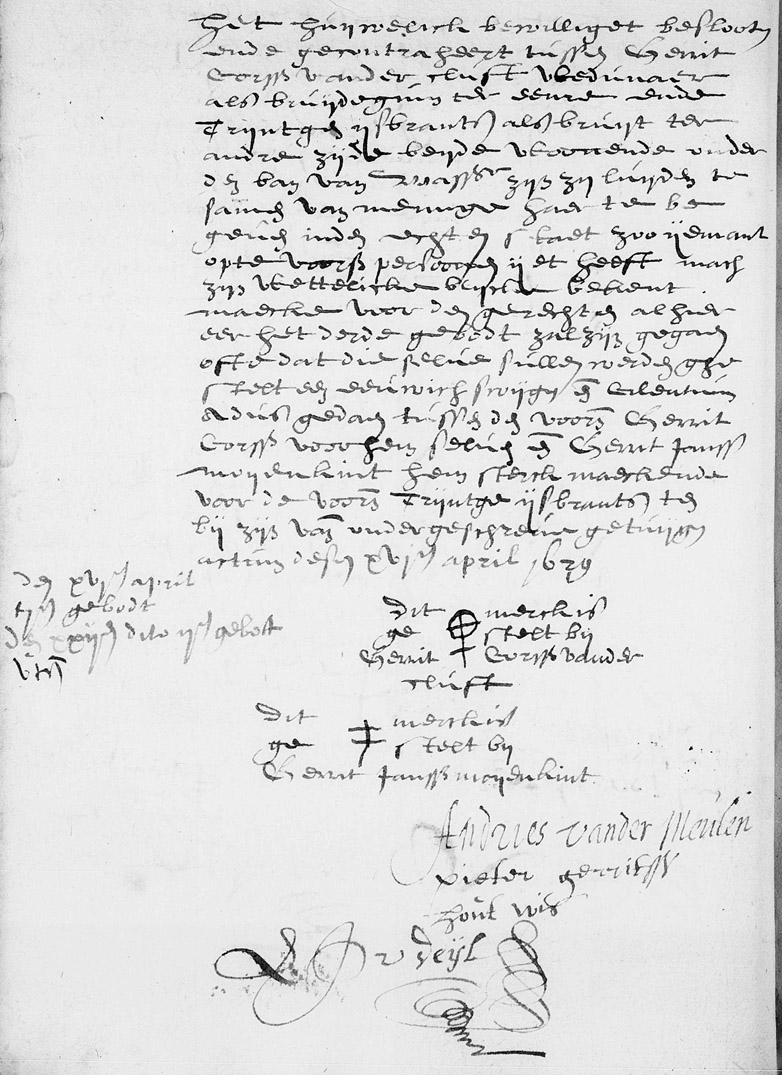 het huijwelick bewilliget beslooten
ende gecontraheert tusschen Gerrit
Corss vander cluft wedunaer
als bruijdegum ter eenre ende
Trijntgen ijsbrants als bruijt ter
andre zijde beijde woonende onder
den ban van zijn zij luijden te
samen van meninge haer te be
geven inden echten staet zoo ijemant
opte voorss persoonen ijet heeft mach
zijn wettelicke bekent
maecken voor den gerechten alhier
eer het derde gebodt zal zijn gegaen
ofte dat die selve sullen werden ghe
stelt een eeuwich swijgen en silentium
Aldus gedaen tussen den voors Gerrit
Corss voor hem selven en Gerrit Janss
moijenkint hem sterck maeckende
voor de voors Trijntge ijsbrants ten
bij zijn van ondergeschreven getuijgen
actum desen xvjen april 1639
den xvjen april
gebodt
den xxijen dito ijen gebott
dit merck is
ge stelt bij
Gerrit Corss vander
cluft
dit merck is
ge stelt bij
Gerrit Janss moijenkint
Andries vander Meulen
pieter gerritss
hout wis
v deijl